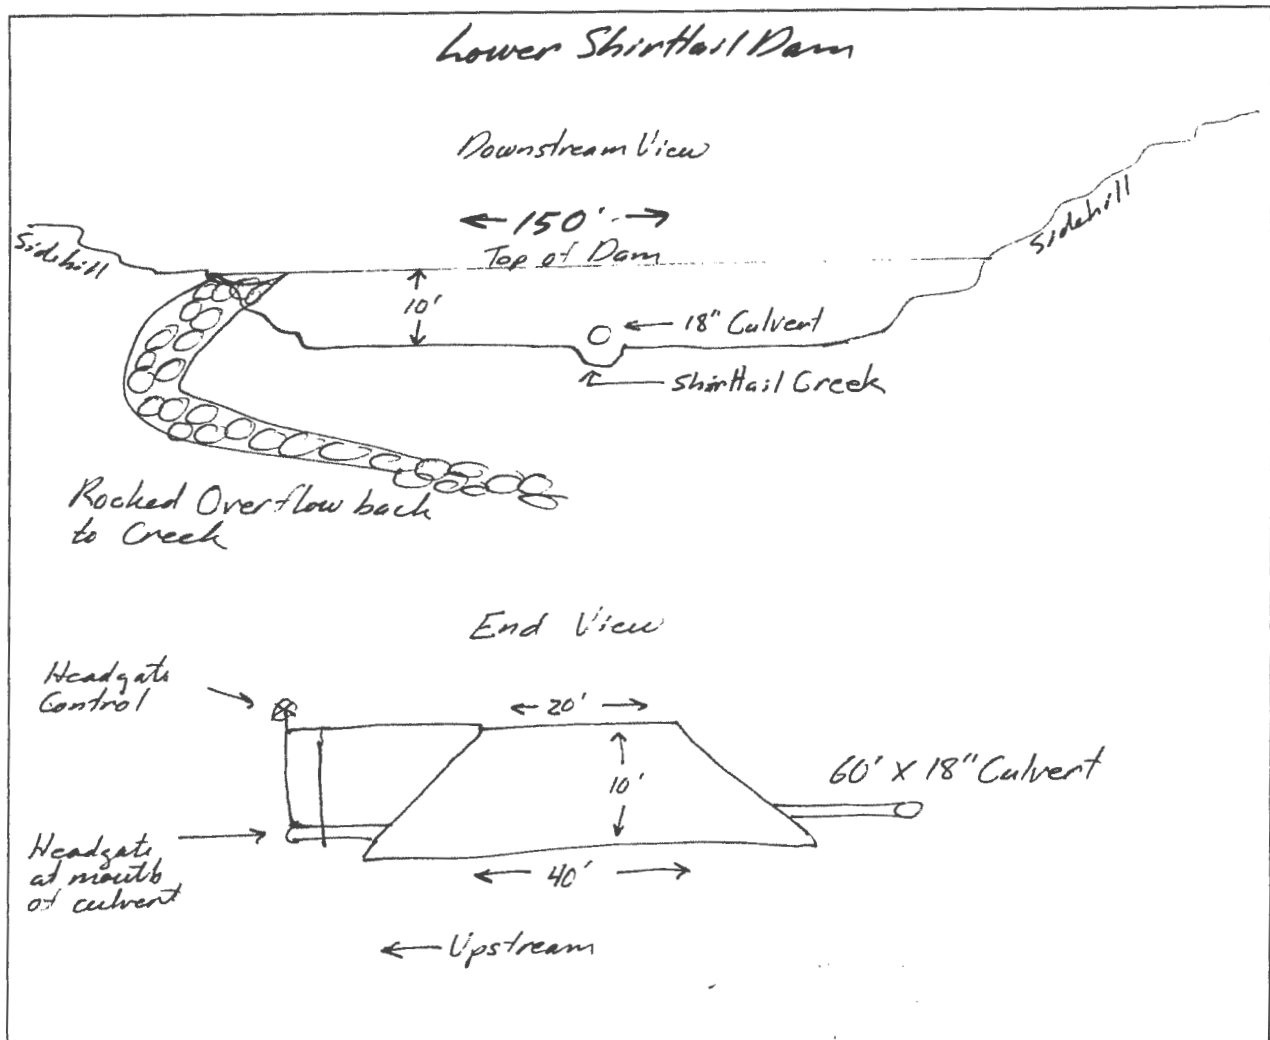 Lower Shirttail Dam
Downstream View
150'
Top of Dam
Sidehill
Sidehill
10'
18" Culvert
Shirttail Creek
Rocked Overflow back
to Creek
End View
Headgate
Control
20'
10'
60' X 18" Culvert
Headgate
at mouth
of culvert
40'
Upstream